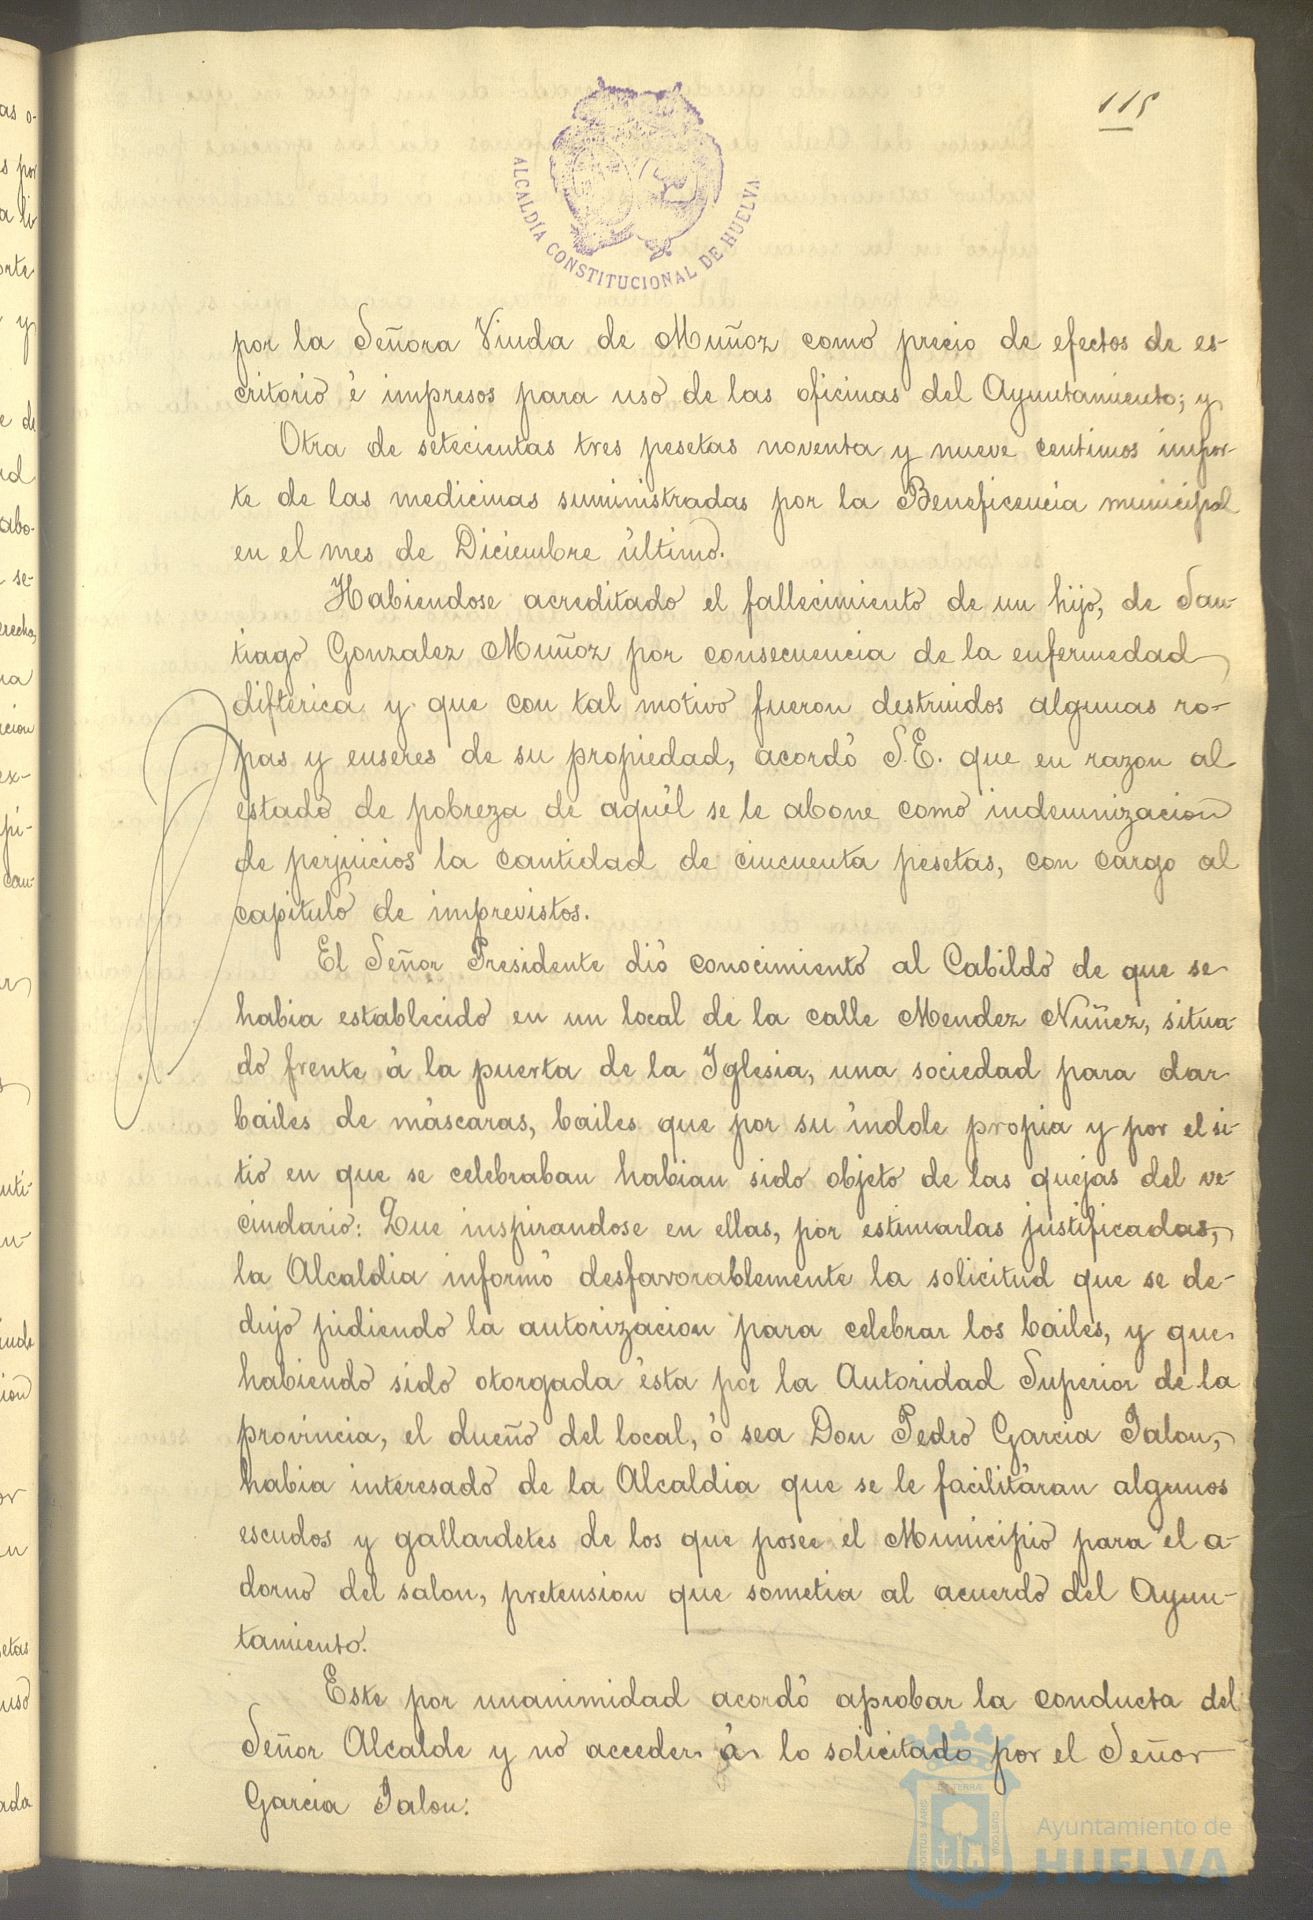 115
ALCALDÍA CONSTITUCIONAL DE HUELVA
por la Señora Viuda de Muñoz como precio de efectos de es-
critorio é impresos para uso de las oficinas del Ayuntamiento; y
Otra de setecientas tres pesetas noventa y nueve centimos impor-
te de las medicinas suministradas por la Beneficencia municipal
en el mes de Diciembre último.
Habiendose acreditado el fallecimiento de un hijo, de San-
tiago Gonzalez Muñoz por consecuencia de la enfermedad
diftérica y que con tal motivo fueron destruidos algunas ro-
pas y enseres de su propiedad, acordó S.E. que en razon al
estado de pobreza de aquél se le abone como indemnizacion
de perjuicios la cantidad de cincuenta pesetas, con cargo al
capitulo de imprevistos.
El Señor Presidente dió conocimiento al Cabildo de que se
habia establecido en un local de la calle Mendez Nuñez, situa-
do frente á la puerta de la Iglesia, una sociedad para dar
bailes de máscaras, bailes que por su índole propia y por el si-
tio en que se celebraban habian sido objeto de las quejas del ve-
cindario: Que inspirandose en ellas, por estimarlas justificadas,
la Alcaldia informó desfavorablemente la solicitud que se de-
dujo pidiendo la autorizacion para celebrar los bailes, y que
habiendo sido otorgada ésta por la Autoridad Superior de la
provincia, el dueño del local, ó sea Don Pedro Garcia Jalon,
habia interesado de la Alcaldia que se le facilitáran algunos
escudos y gallardetes de los que posee el Municipio para el a-
dorno del salon, pretension que sometia al acuerdo del Ayun-
tamiento.
Este por unanimidad acordó aprobar la conducta del
Señor Alcalde y no acceder á lo solicitado por el Señor
Garcia Jalon.
Ayuntamiento de
HUELVA